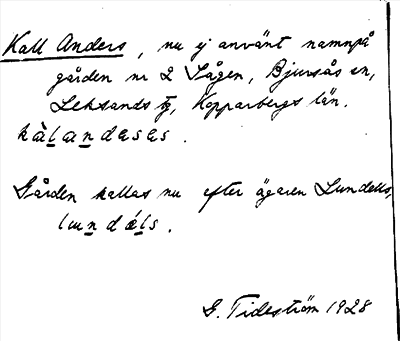 Kall Anders, nu ej använt namn på
gården nr 2 Sågen, Bjursås sn,
Leksands tg, Kopparbergs län.
kàlandesas.
Gården kallas nu efter ägaren Lundells,
lundǽls.
G. Tideström 1928